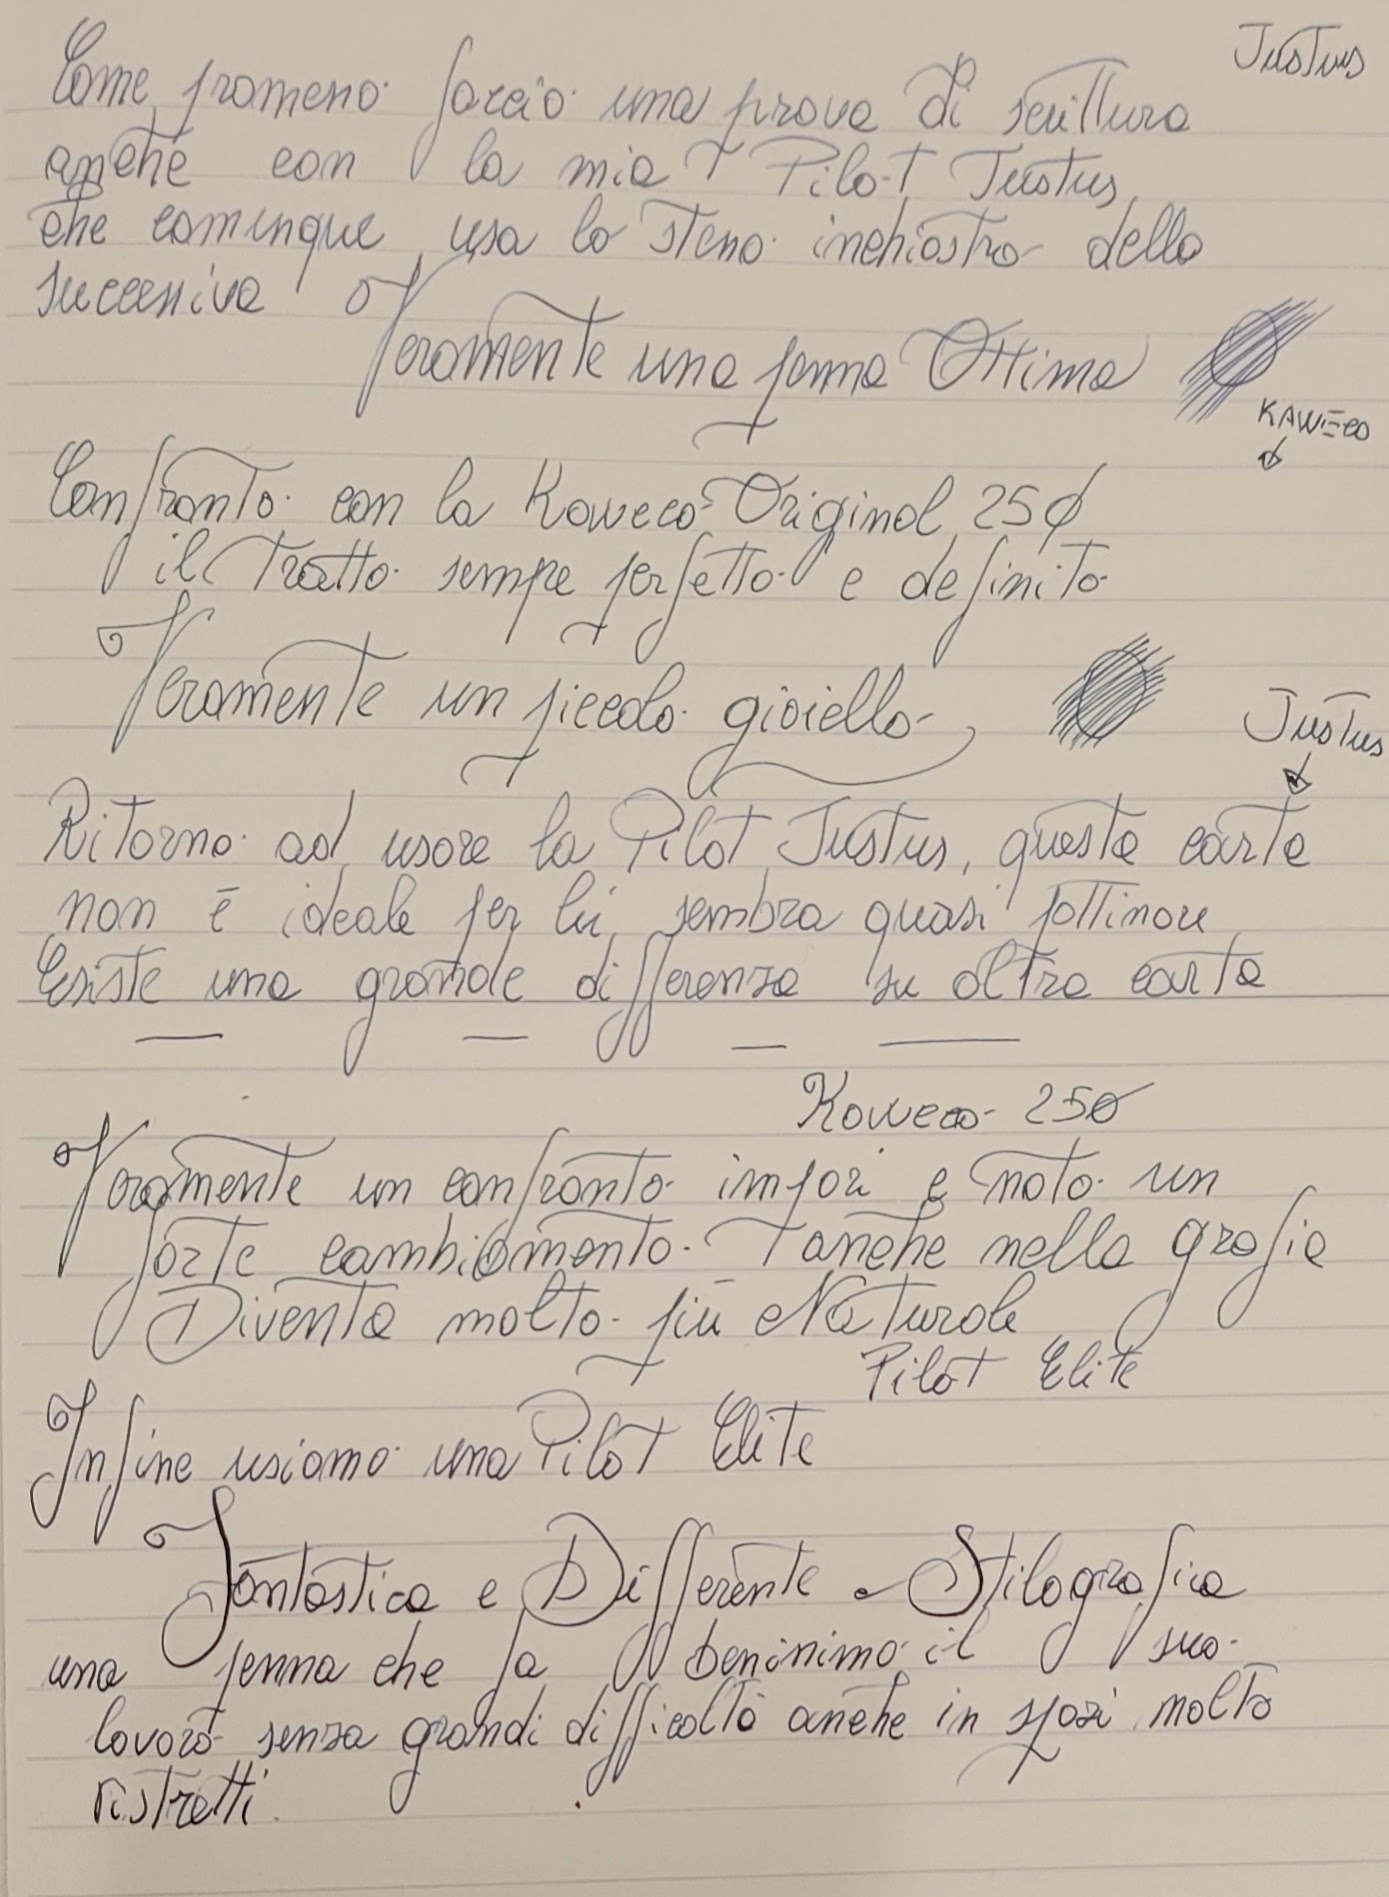 Justus
Come promesso faccio una prova di scrittura
anche con la mia Pilot Justus
che comunque usa lo stesso inchiostro della
successiva
Veramente una penna Ottima
KAWECO
Confronto con la Kaweco Original 250
il tratto sempre perfetto e definito
Veramente un piccolo gioiello
Justus
Ritorno ad usare la Pilot Justus, questa carta
non è ideale per lei, sembra quasi
Esiste una grande differenza su altra carta
Kaweco 250
Veramente un confronto impari e noto un
forte cambiamento anche nella grafia
Diventa molto più Naturale
Pilot Elite
Infine usiamo una Pilot Elite
Fantastica e Differente Stilografica
una penna che fa benissimo il suo
lavoro senza grandi difficoltà anche in spazi molto
ristretti.